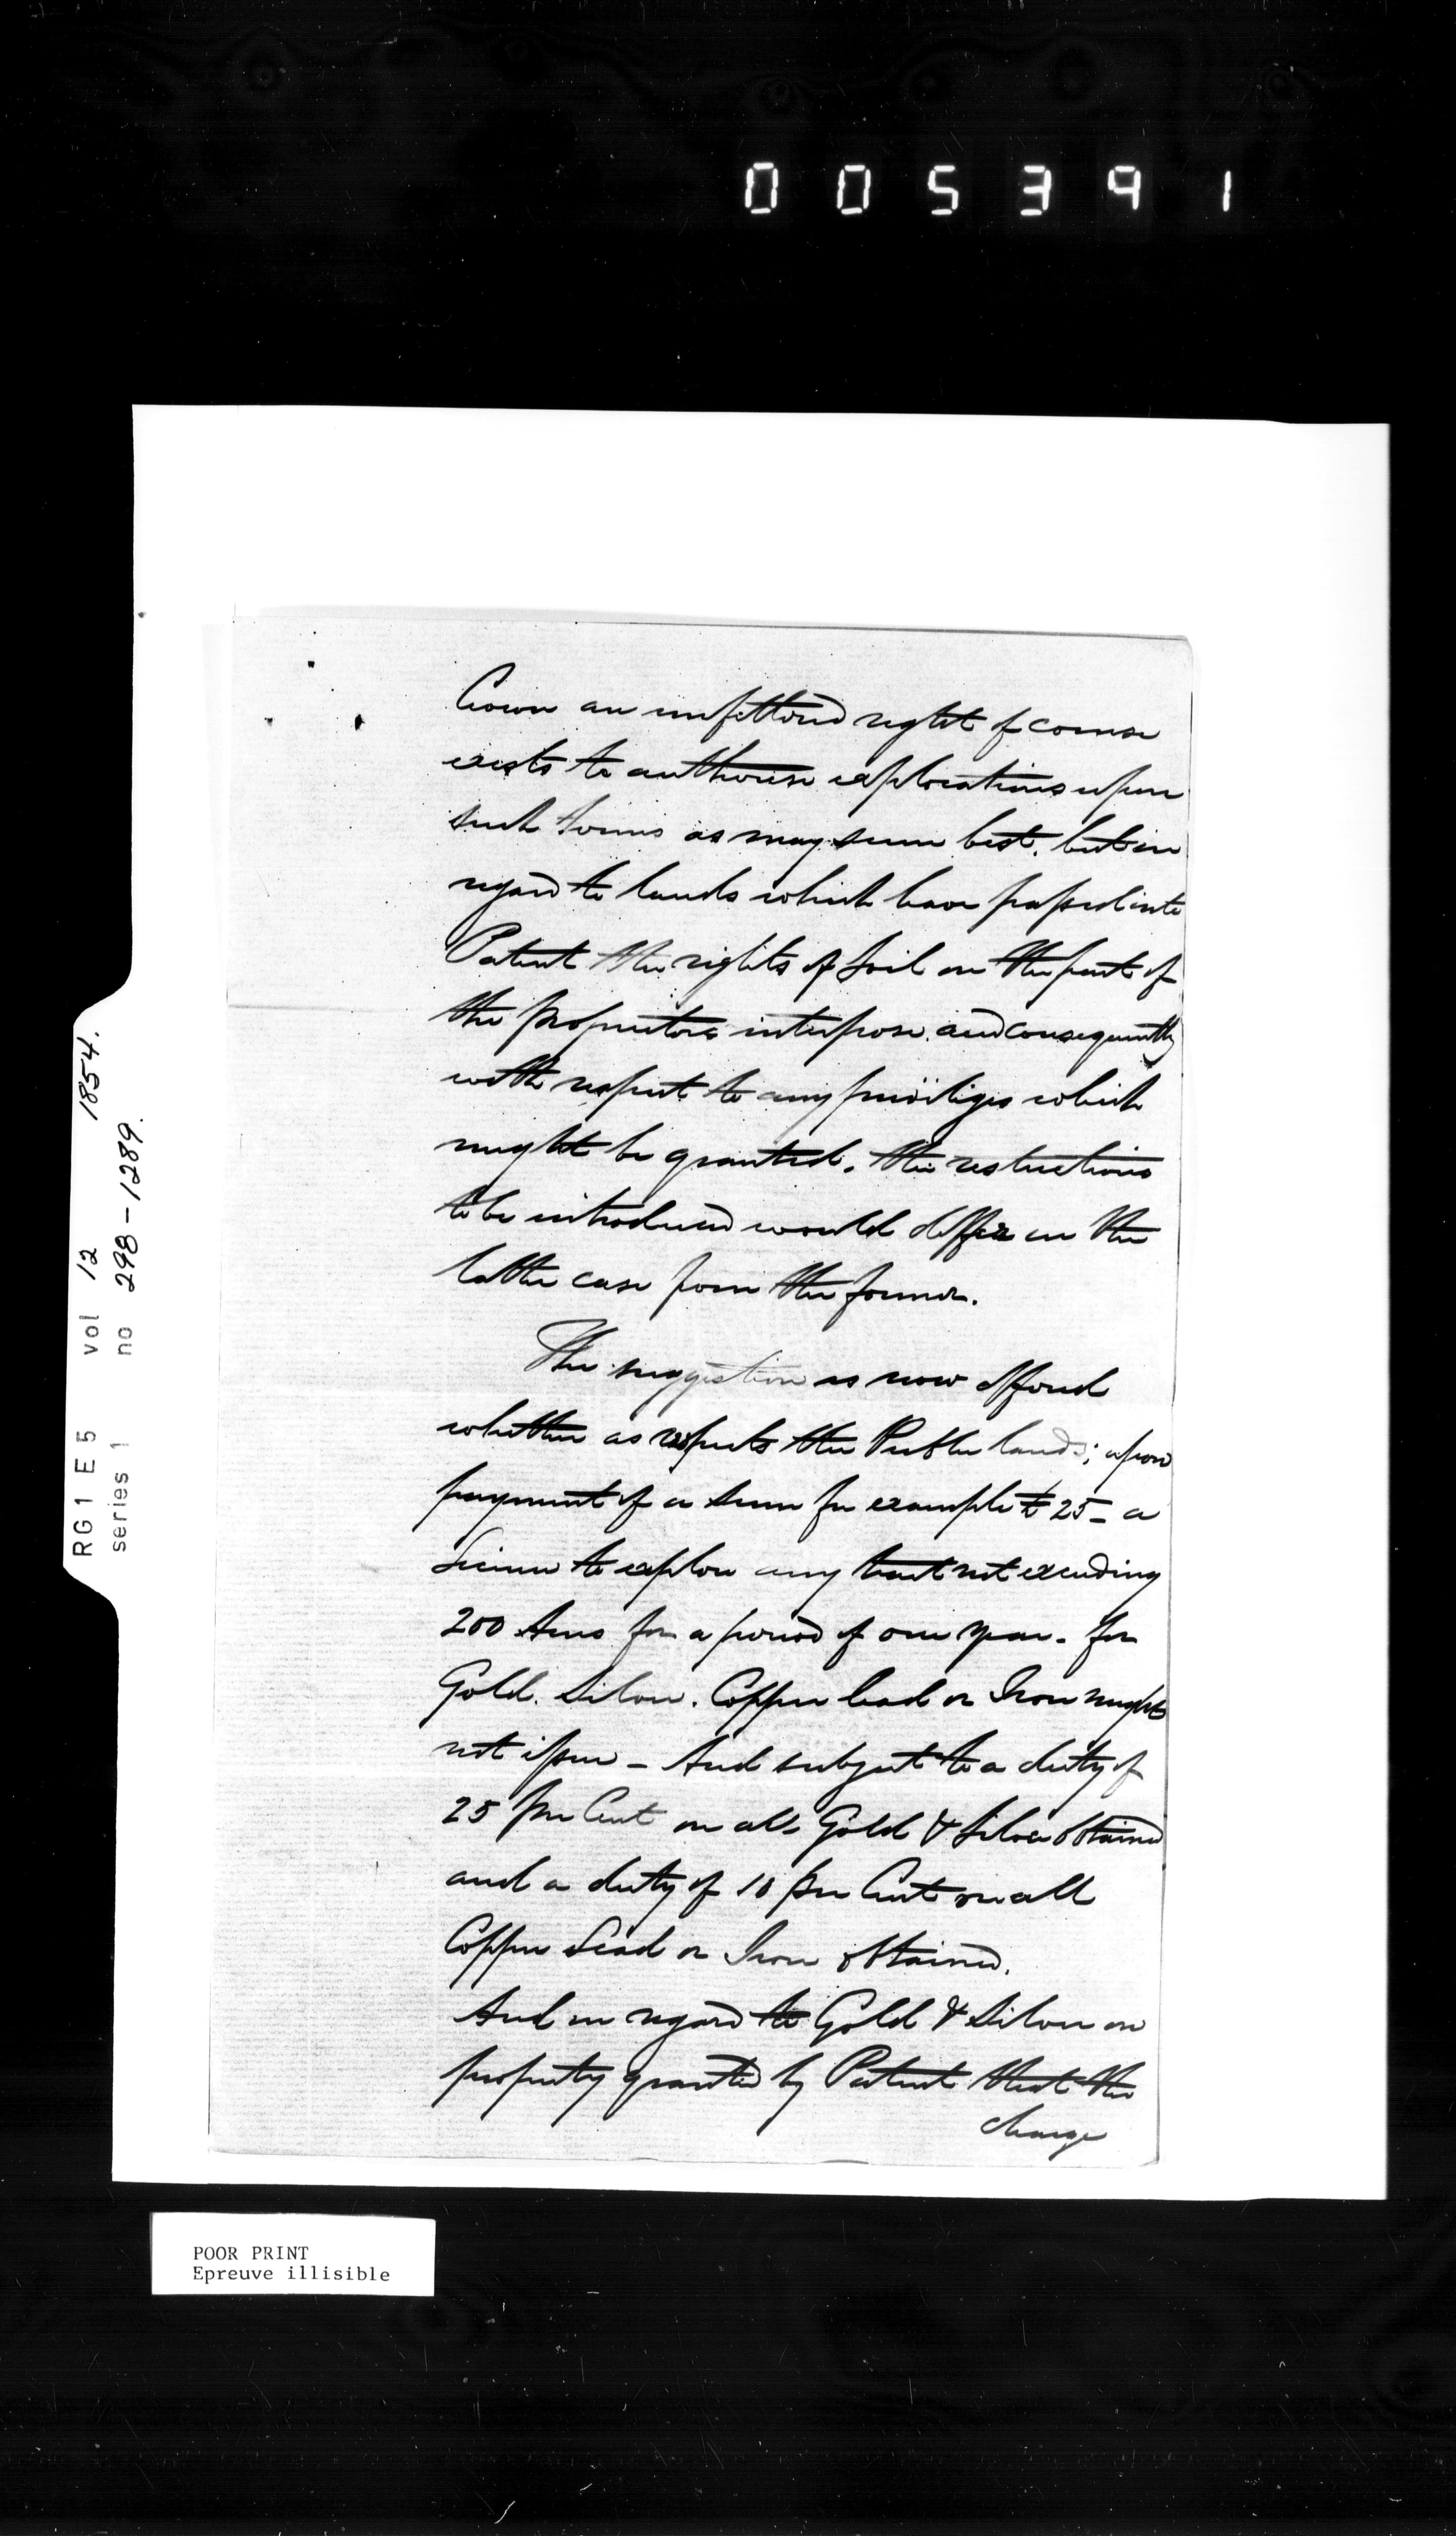 005391
RG1 E5 vol 12 1854.
series 1 no 298-1289.
Crown an unfettered right of course
exists to authorise explorations upon
such terms as may seem best. but in
regard to lands which have passed into
Patent the rights of Soil on the part of
the proprietors interpose. and consequently
with respect to any priviliges which
might be granted. the restrictions
to be introduced would differ in the
latter case from the former.
The suggestion is now offered
whether as respects the Public lands; upon
payment of a sum for example £25- a
License to explore any tract not exceeding
200 Acres for a period of one year - for
Gold. Silver. Copper lead or Iron might
not issue - And subject to a duty of
25 per Cent on all Gold & Silver obtained
and a duty of 10 per Cent on all
Copper Lead or Iron obtained.
And in regard to Gold & Silver on
property granted by Patent that the
charge
POOR PRINT
Epreuve illisible